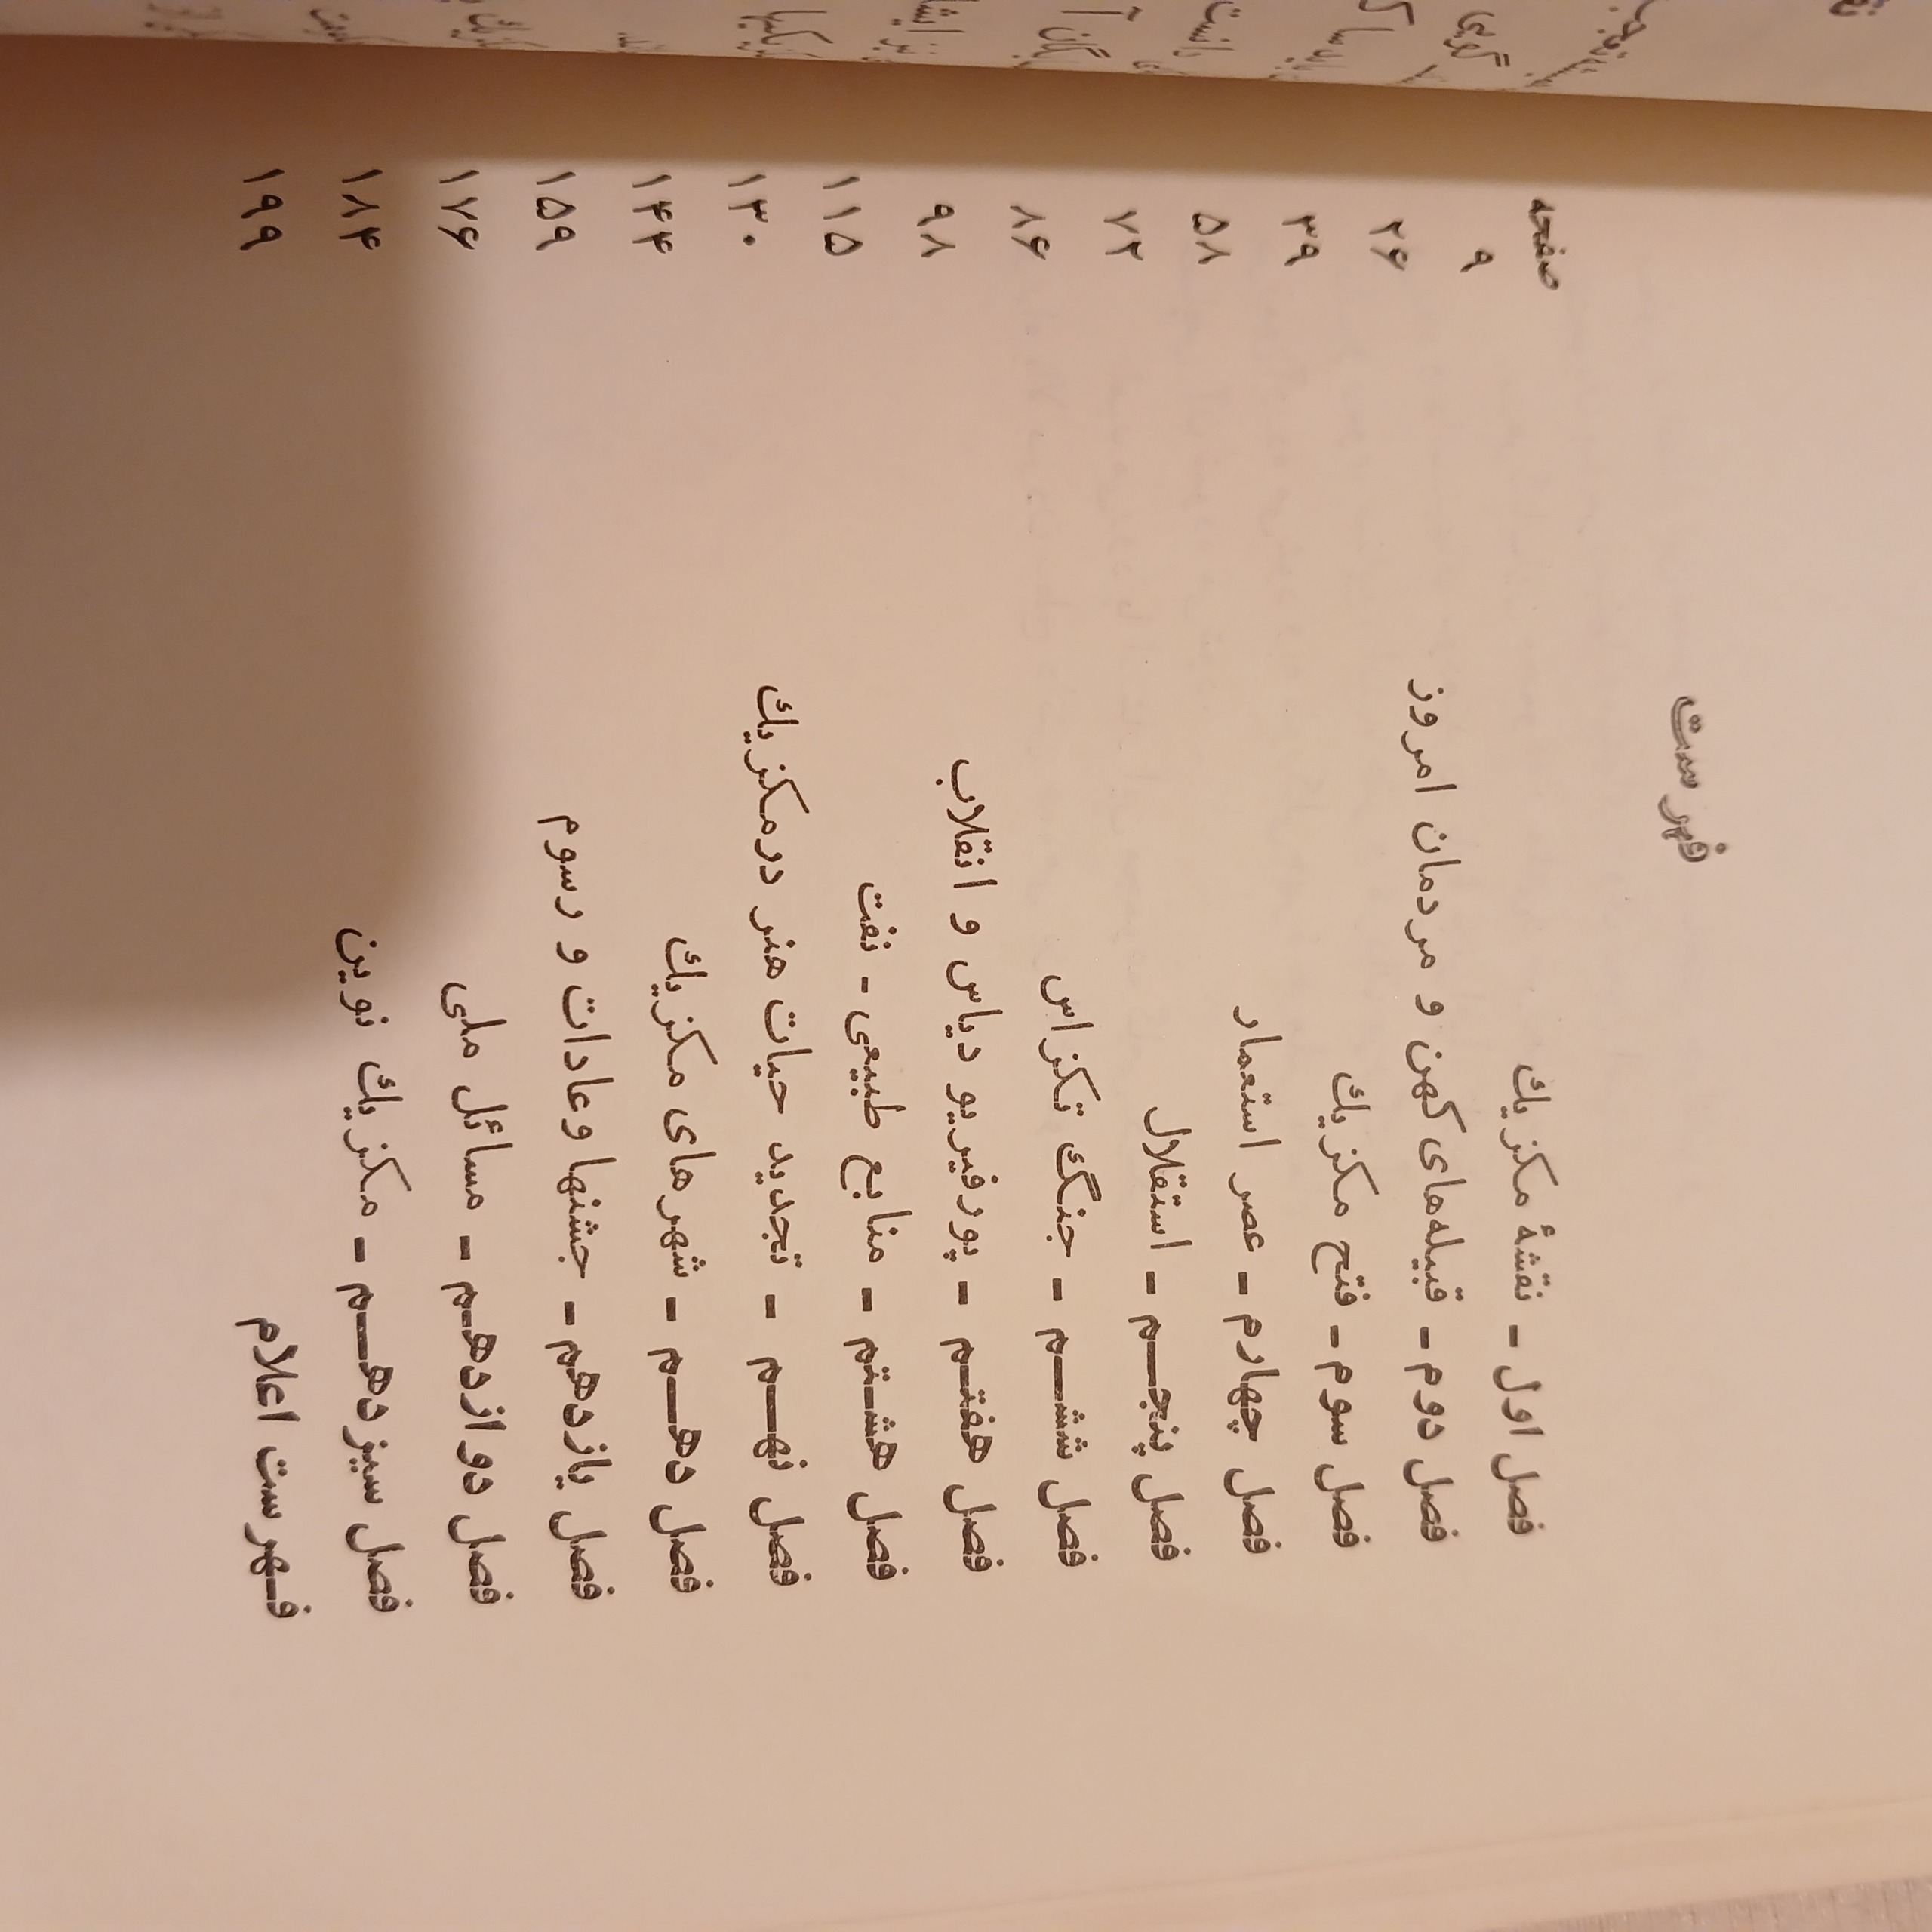 فهرست
صفحه
فصل اول - نقشهٔ مکزیك ۹
فصل دوم - قبیله‌های کهن و مردمان امروز ۲۶
فصل سوم - فتح مکزیك ۳۹
فصل چهارم - عصر استعمار ۵۸
فصل پنجم - استقلال ۷۲
فصل ششم - جنگ تکزاس ۸۶
فصل هفتم - پورفیریو دیاس و انقلاب ۹۸
فصل هشتم - منابع طبیعی - نفت ۱۱۵
فصل نهم - تجدید حیات هنر در مکزیك ۱۳۰
فصل دهم - شهرهای مکزیك ۱۴۴
فصل یازدهم - جشنها و عادات و رسوم ۱۵۹
فصل دوازدهم - مسائل ملی ۱۷۶
فصل سیزدهم - مکزیك نوین ۱۸۴
فهرست اعلام ۱۹۹